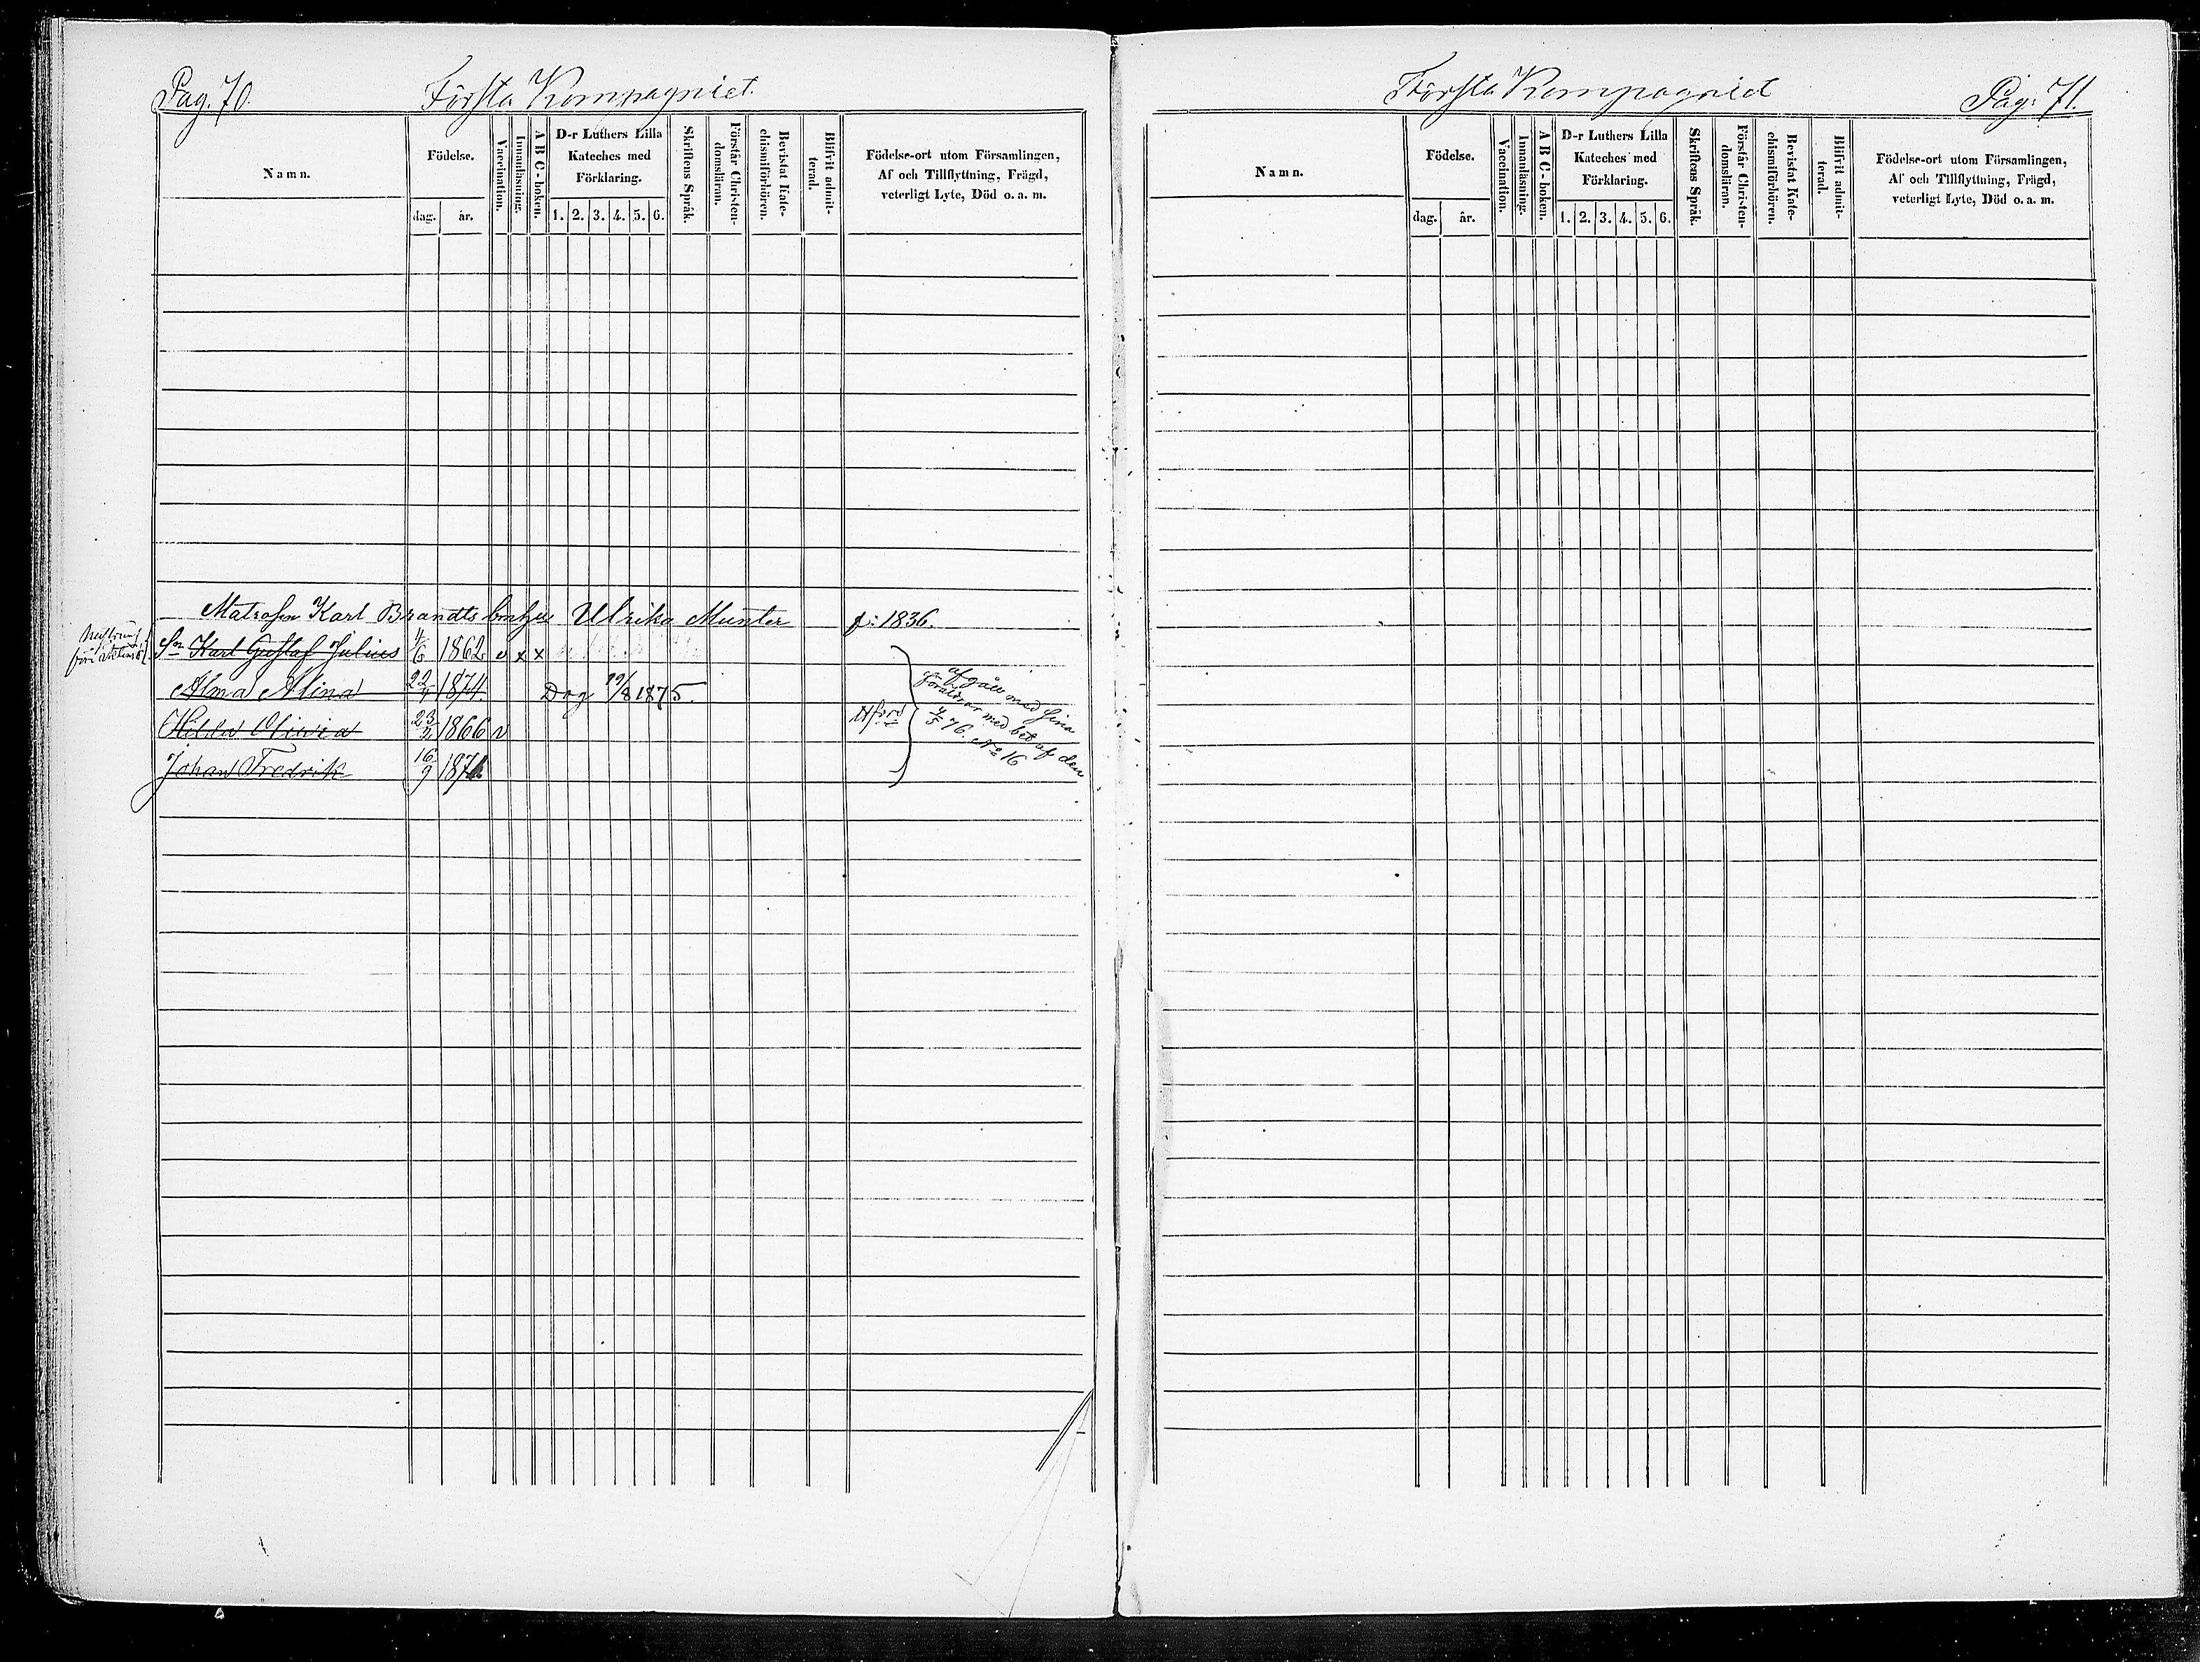 Pag. 70.
Första Kompagniet.
Namn.
Födelse.
dag.
år.
Vaccination.
Innanläsning.
A B C-boken.
D-r Luthers Lilla
Kateches med
Förklaring.
1. 2. 3. 4. 5. 6.
Skriftens Språk.
Förstår Christen-
domsläran.
Bevistat Kate-
chismiförhören.
Blifvit admit-
terad.
Födelse-ort utom Församlingen,
Af och Tillflyttning, Frägd,
veterligt Lyte, Död o. a. m.
Matrosen Karl Brandts Ulrika Munter f: 1836.
före
Son Karl Gustaf Julius 4/6 1862 v x x
Alma Alina 22/4 1874. Dog 19/8 1875.
Hilda Olivia 23/2 1866 v H:fors
Johan Fredrik 16/9 1871
afgått med sina
föräldrar med bet af den
4/5 76. No 16
Första Kompagniet
Pag: 71.
Namn.
Födelse.
dag.
år.
Vaccination.
Innanläsning.
A B C-boken.
D-r Luthers Lilla
Kateches med
Förklaring.
1. 2. 3. 4. 5. 6.
Skriftens Språk.
Förstår Christen-
domsläran.
Bevistat Kate-
chismiförhören.
Blifvit admit-
terad.
Födelse-ort utom Församlingen,
Af och Tillflyttning, Frägd,
veterligt Lyte, Död o. a. m.